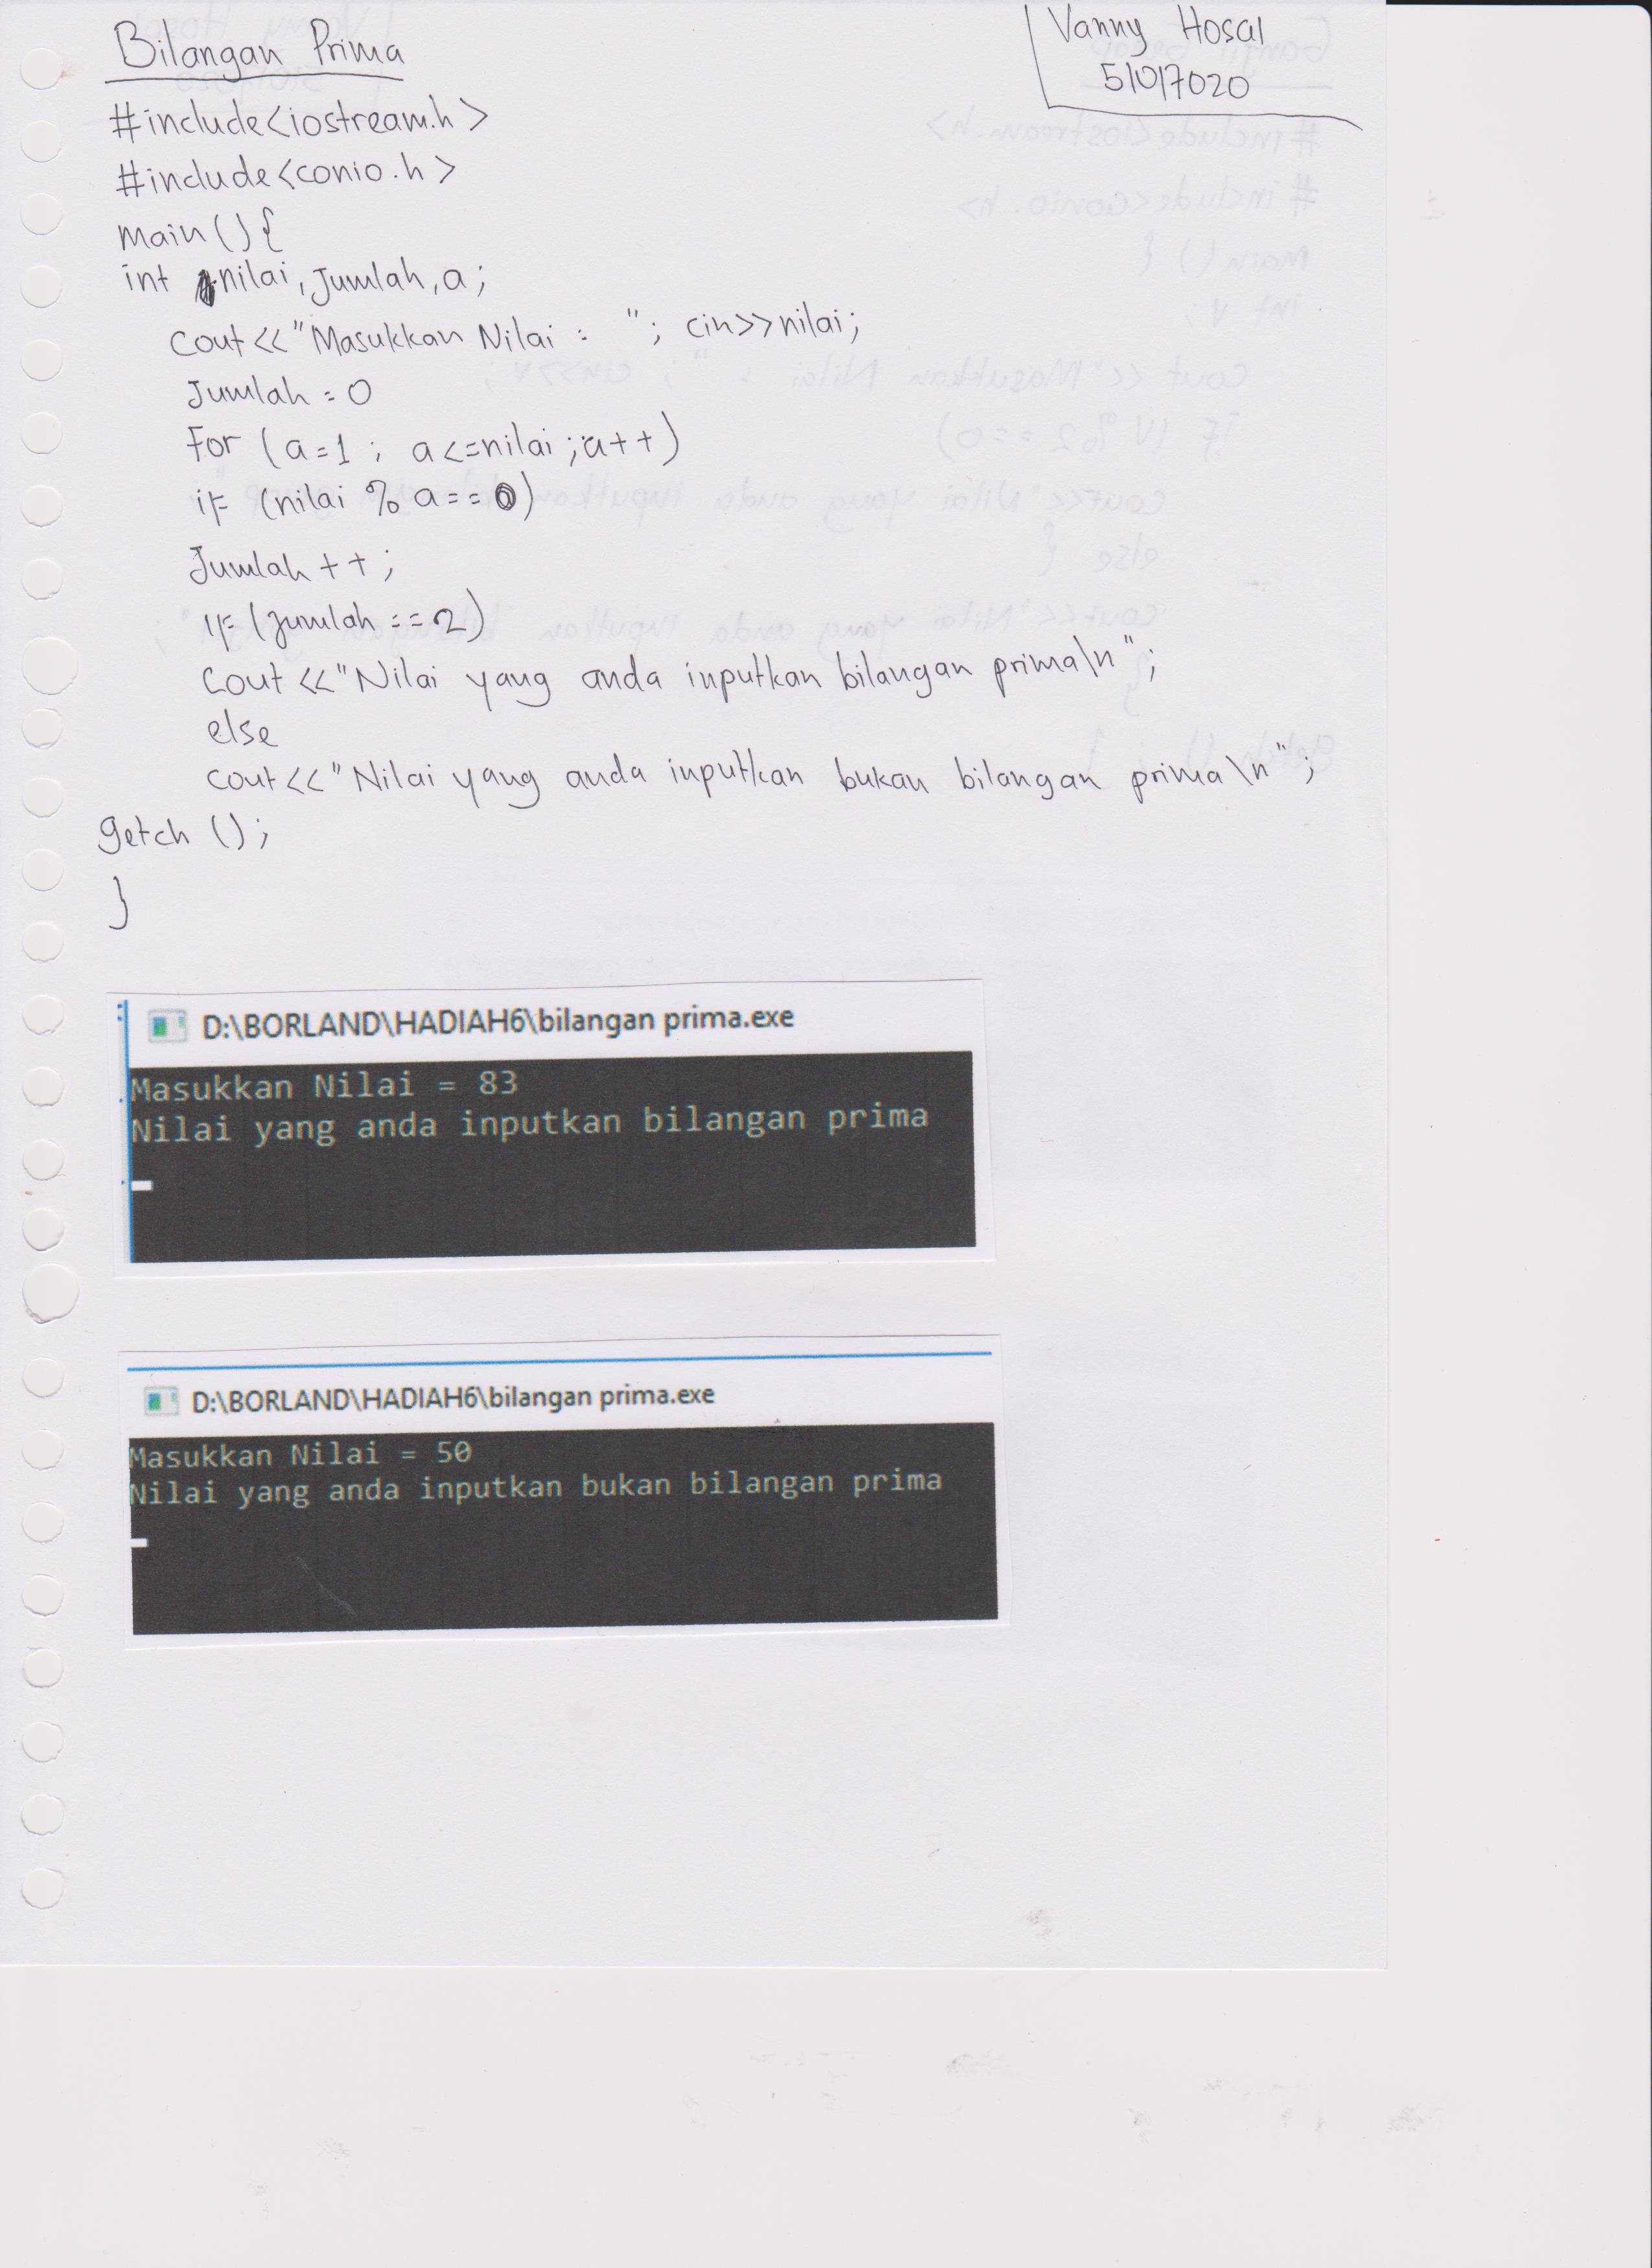 Bilangan Prima
Vanny Hosal
51017020
#include<iostream.h>
#include<conio.h>
main(){
int nilai, jumlah, a;
cout<<"Masukkan Nilai = "; cin>>nilai;
Jumlah = 0
For (a=1 ; a<=nilai ;a++)
if (nilai % a==0)
Jumlah ++;
if (jumlah ==2)
cout <<"Nilai yang anda inputkan bilangan prima\n";
else
cout<<"Nilai yang anda inputkan bukan bilangan prima\n";
getch ();
}
D:\BORLAND\HADIAH6\bilangan prima.exe
Masukkan Nilai = 83
Nilai yang anda inputkan bilangan prima
D:\BORLAND\HADIAH6\bilangan prima.exe
Masukkan Nilai = 50
Nilai yang anda inputkan bukan bilangan prima